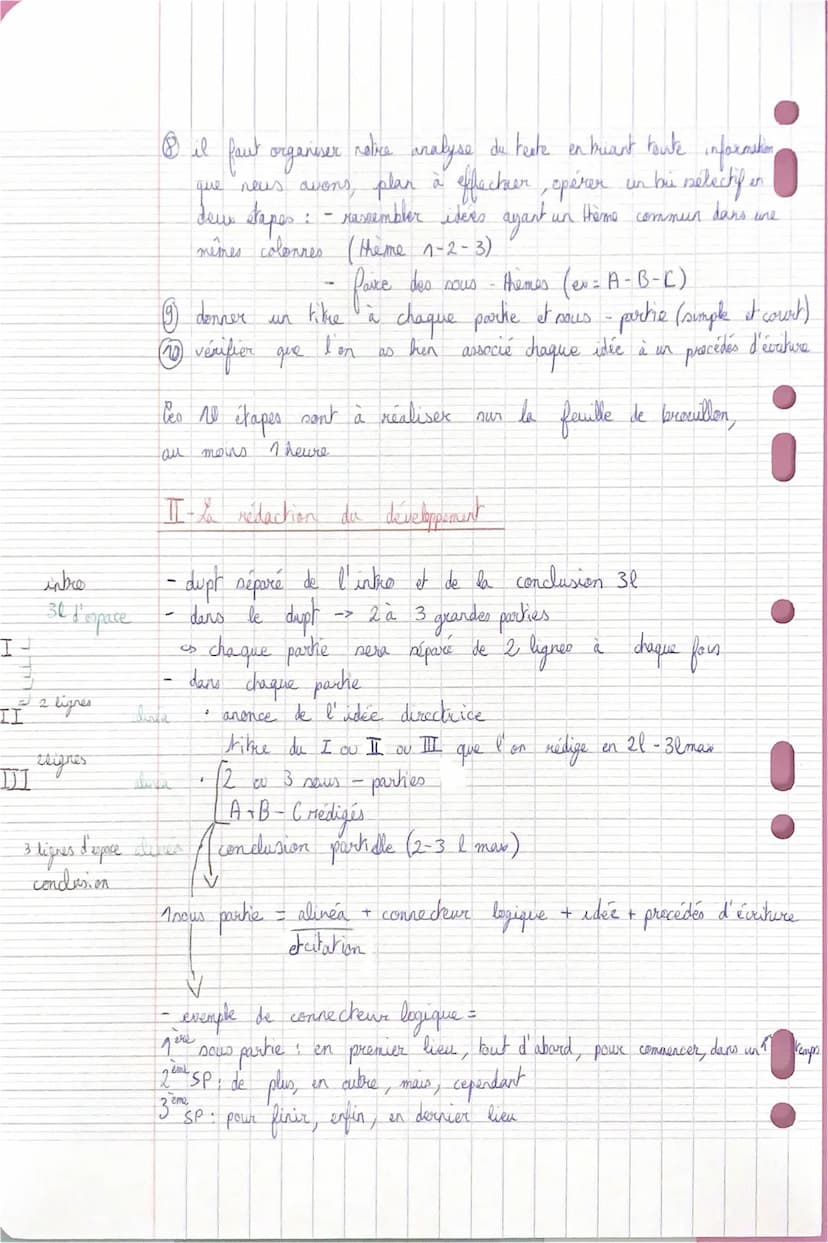 ⑧ il faut organiser notre analyse du texte en triant toute information
que nous avons, plan à effectuer, opérer un tri sélectif en
deux étapes : - rassembler idées ayant un thème commun dans une
mêmes colonnes (thème 1-2-3)
- faire des sous-thèmes (ex = A-B-C)
⑨ donner un titre à chaque partie et sous-partie (simple et court)
⑩ vérifier que l'on as bien associé chaque idée à un procédés d'écriture
Ces 10 étapes sont à réaliser sur la feuille de brouillon,
au moins 1 heure
II - La rédaction du développement
intro - dvpt séparé de l'intro et de la conclusion 3l
3l d'espace - dans le dvpt -> 2 à 3 grandes parties
I ↪ chaque partie sera séparé de 2 lignes à chaque fois
- dans chaque partie
= 2 lignes
II alinéa • anonce de l'idée directrice
titre du I ou II ou III que l'on rédige en 2l - 3l max
2 lignes
III alinéa • 2 ou 3 sous-parties
A-B-C rédigés
3 lignes d'espace alinéa conclusion partielle (2-3 l max)
conclusion
1 sous partie = alinéa + connecteur logique + idée + procédés d'écriture
et citation
- exemple de connecteur logique =
1ère sous partie : en premier lieu, tout d'abord, pour commencer, dans un 1er temps
2ème SP : de plus, en outre, mais, cependant
3ème SP : pour finir, enfin, en dernier lieu